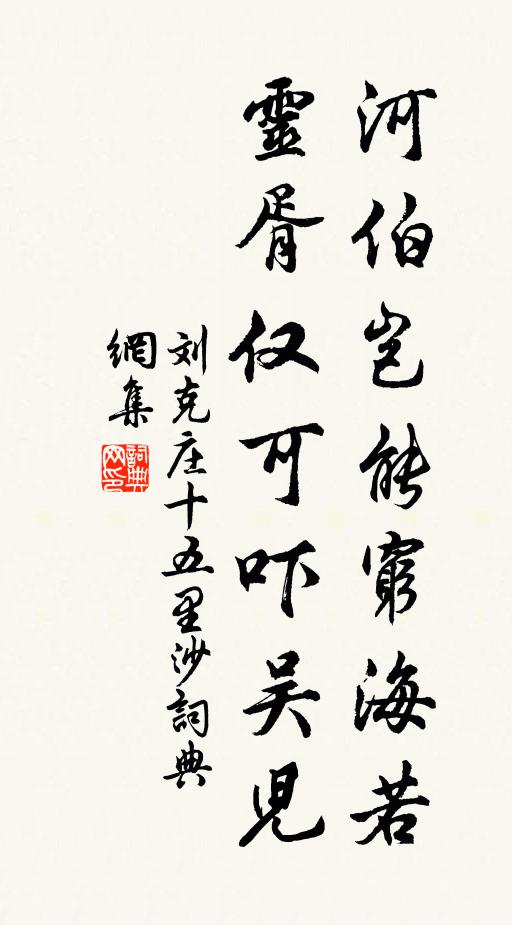 河伯岂能窮海若
靈胥仅可吓吴児
刘克庄十五里沙詞典
網集
詞典
网印